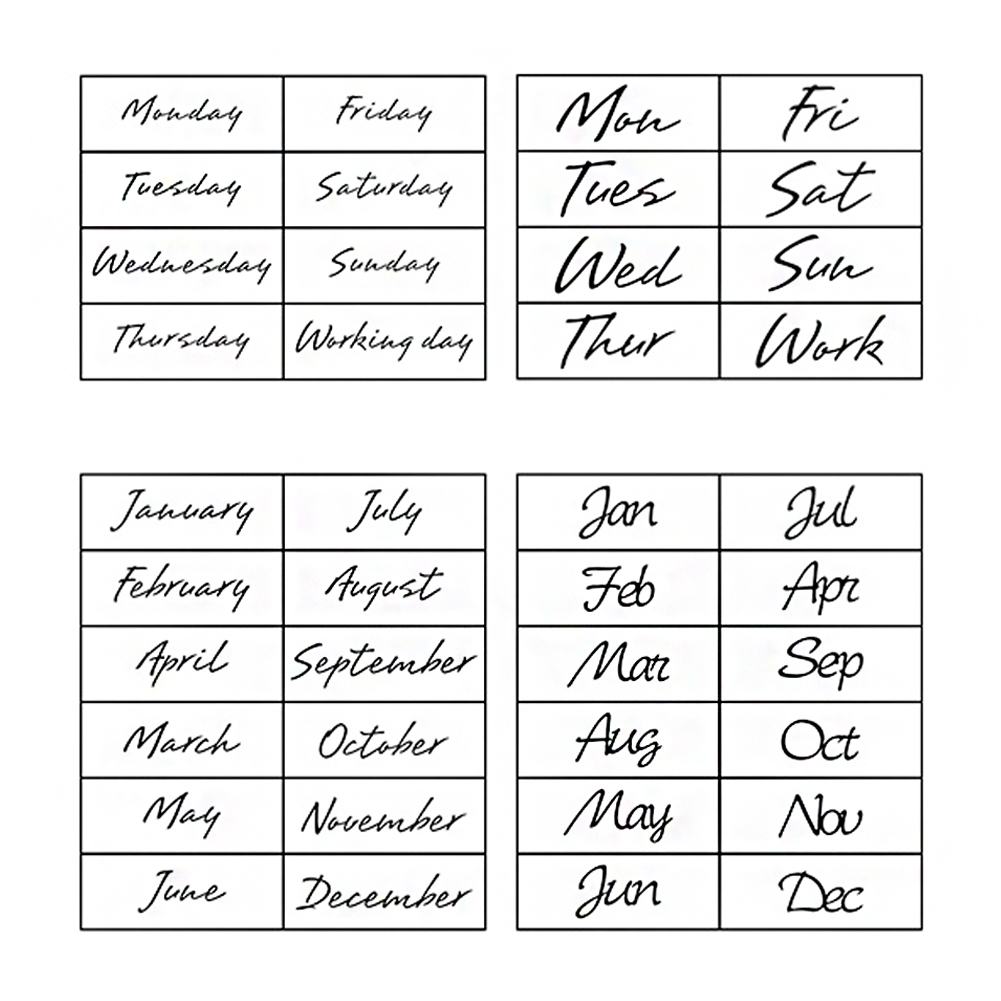 Monday Friday
Tuesday Saturday
Wednesday Sunday
Thursday Working day
Mon Fri
Tues Sat
Wed Sun
Thur Work
January July
February August
April September
March October
May November
June December
Jan Jul
Feb Apr
Mar Sep
Aug Oct
May Nov
Jun Dec